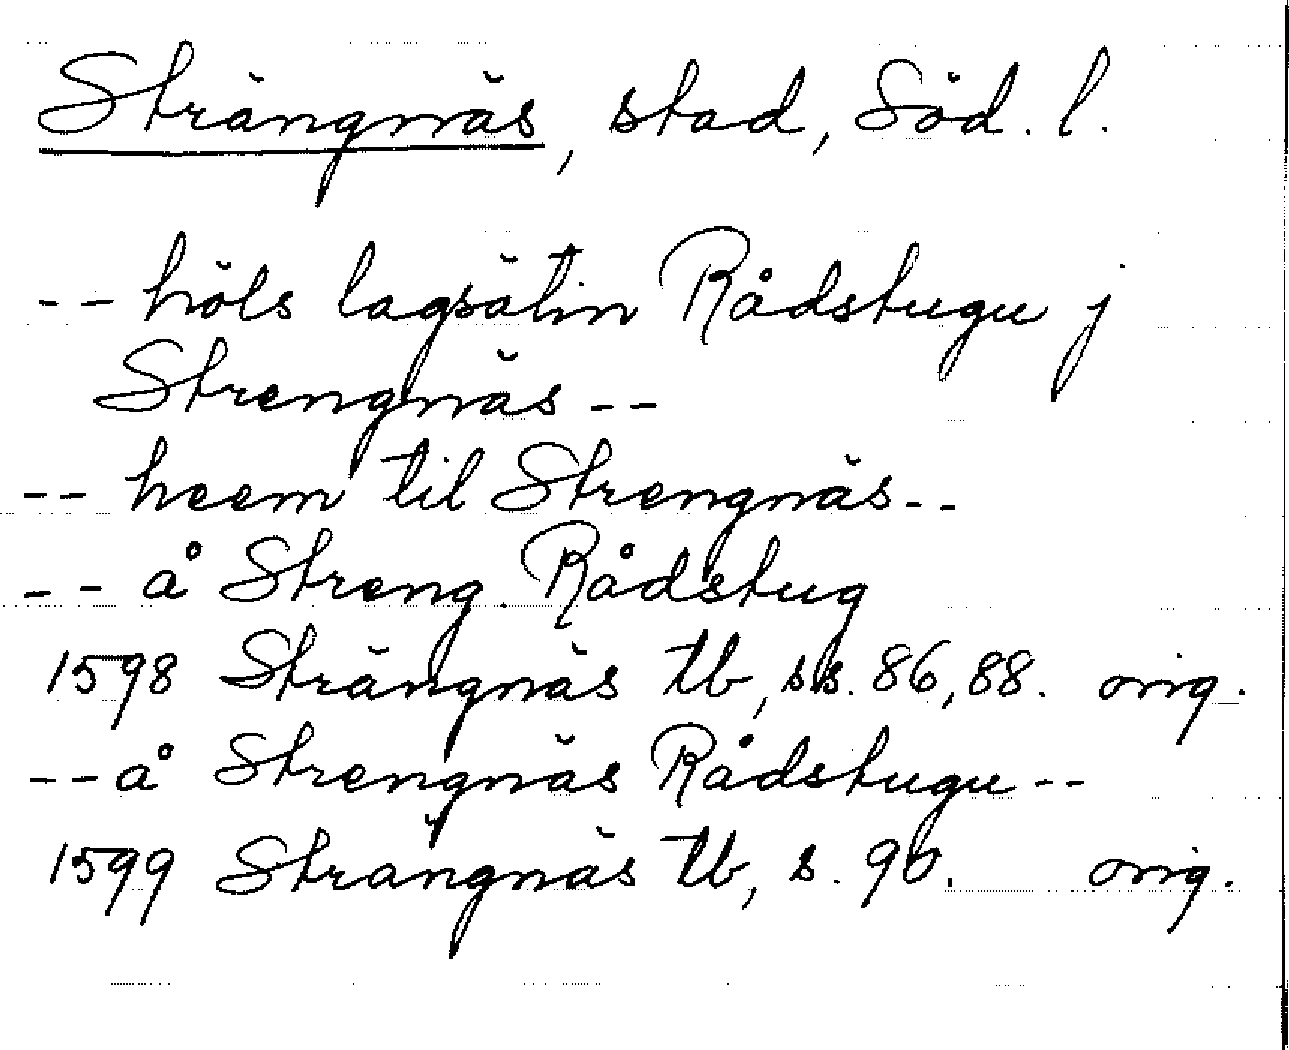 Strängnäs, stad, Söd. l.
-- höls lagsätin Rådstugu j
Strengnäs --
-- heem til Strengnäs --
-- å Streng. Rådstug
1598 Strängnäs tb, ss. 86, 88. orig.
-- å Strengnäs Rådstugu --
1599 Strängnäs tb, s. 90. orig.